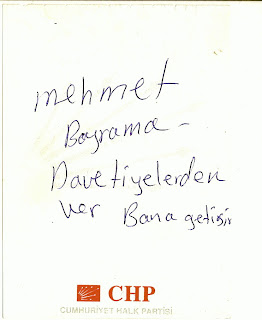 mehmet
Bayrama -
Davetiyelerden
ver Bana getirsin
CHP
CUMHURİYET HALK PARTİSİ